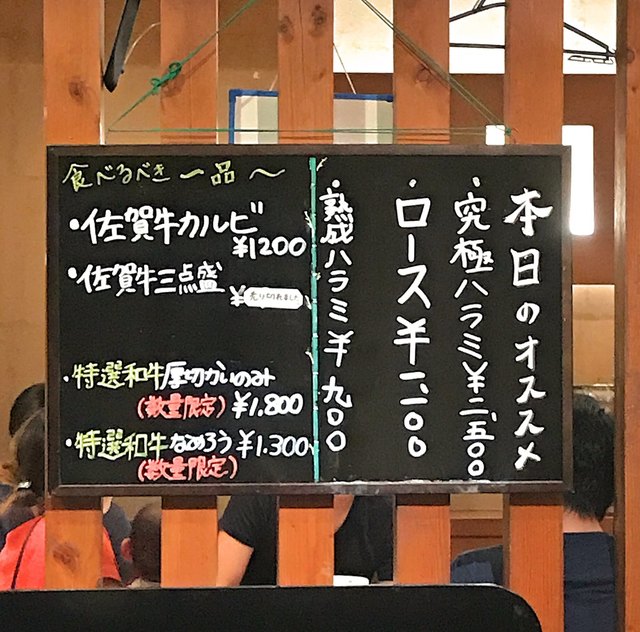 本日のオススメ
・究極ハラミ¥二、五〇〇
・ロース¥一、一〇〇
・熟成ハラミ¥九〇〇
食べるべき一品〜
・佐賀牛カルビ
¥1200
・佐賀牛三点盛
¥売り切れました
・特選和牛厚切かいのみ
(数量限定)¥1,800
・特選和牛なめろう¥1.300
(数量限定)